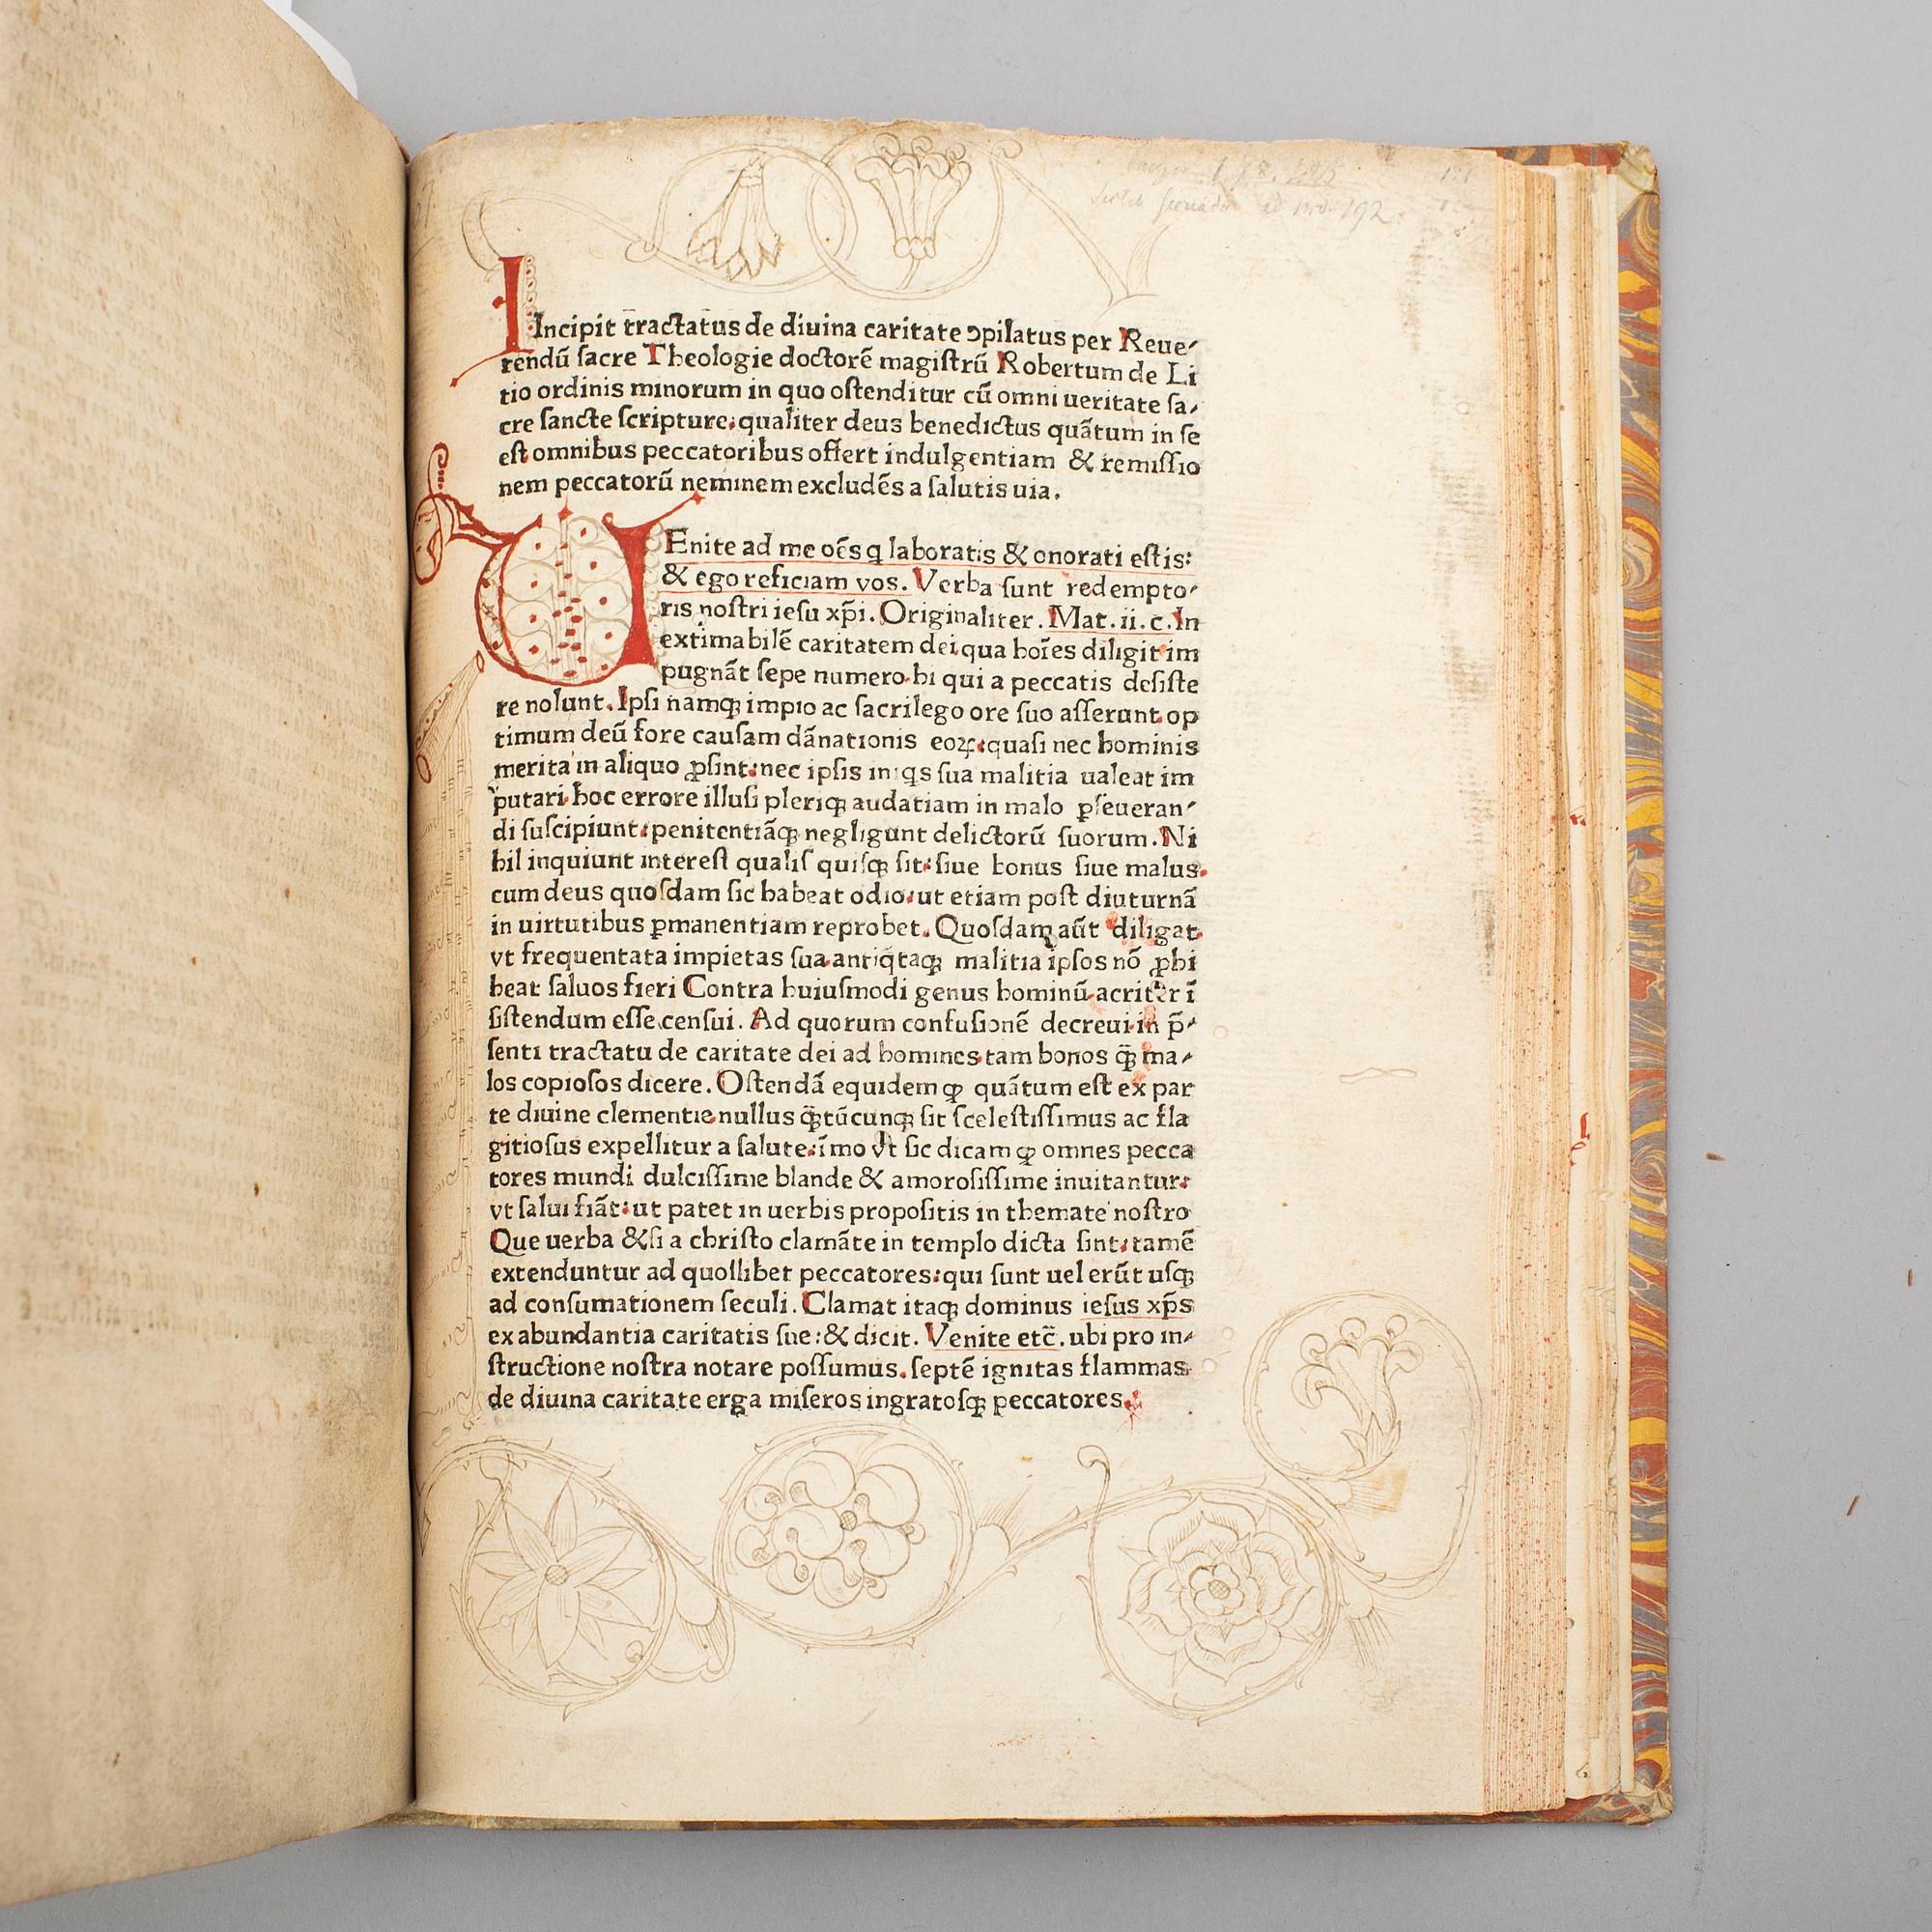 Incipit tractatus de diuina caritate ↄpilatus per Reue⸗
rendū ſacre Theologie doctorē magiſtrū Robertum de Li
tio ordinis minorum in quo oſtenditur cū omni ueritate ſa⸗
cre ſancte ſcripture: qualiter deus benedictus quātum in ſe
eſt omnibus peccatoribus offert indulgentiam & remiſſio
nem peccatorū neminem excludēs a ſalutis uia.
VEnite ad me oēs q laboratis & onorati eſtis:
& ego reficiam vos. Verba ſunt redempto⸗
ris noſtri ieſu xp̄i. Originaliter. Mat. ii. c. In
extimabilē caritatem dei qua hoīes diligit im
pugnāt ſepe numero hi qui a peccatis deſiſte
re nolunt. Ipſi namqꝫ impio ac ſacrilego ore ſuo aſſerunt op
timum deū fore cauſam dānationis eoꝝ: quaſi nec hominis
merita in aliquo ꝓſint: nec ipſis iniq̄s ſua malitia ualeat im
putari hoc errore illuſi pleriqꝫ audatiam in malo ꝑſeueran⸗
di ſuſcipiunt: penitentiāqꝫ negligunt delictorū ſuorum. Ni
hil inquiunt intereſt qualiſ quiſqꝫ ſit: ſiue bonus ſiue malus.
cum deus quoſdam ſic habeat odio: ut etiam poſt diuturnā
in uirtutibus ꝑmanentiam reprobet. Quoſdam aūt diligat
vt frequentata impietas ſua antiq̄taqꝫ malitia ipſos nō ꝓhi
beat ſaluos fieri Contra huiuſmodi genus hominū acriter ī
ſiſtendum eſſe cenſui. Ad quorum confuſionē decreui in p̄⸗
ſenti tractatu de caritate dei ad homines tam bonos q̄ꝫ ma⸗
los copioſos dicere. Oſtendā equidem ꝙ quātum eſt ex par
te diuine clementie nullus q̄ꝫtūcunqꝫ ſit ſceleſtiſſimus ac fla
gitioſus expellitur a ſalute: īmo vt ſic dicam ꝙ omnes pecca
tores mundi dulciſſime blande & amoroſiſſime inuitantur:
vt ſalui fiāt: ut patet in uerbis propoſitis in themate noſtro
Que uerba & ſi a chriſto clamāte in templo dicta ſint: tamē
extenduntur ad quoſlibet peccatores: qui ſunt uel erūt uſqꝫ
ad conſumationem ſeculi. Clamat itaqꝫ dominus ieſus xp̄s
ex abundantia caritatis ſue: & dicit. Venite etc̄. ubi pro in⸗
ſtructione noſtra notare poſſumus. ſeptē ignitas flammas
de diuina caritate erga miſeros ingratoſqꝫ peccatores.